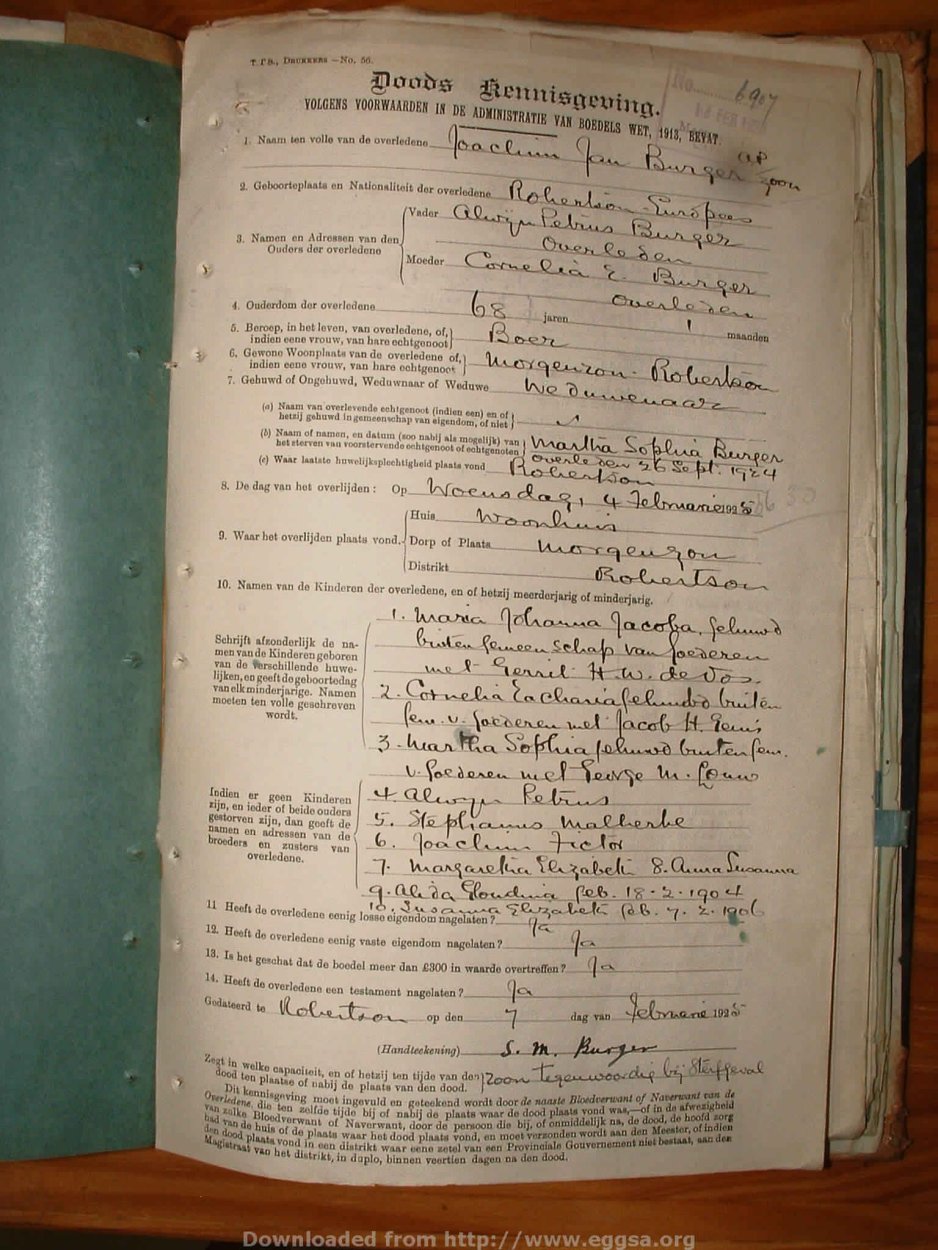 T.P.B., DRUKKERS —No. 56.
No. 6907
FEB
Doods Kennisgeving.
VOLGENS VOORWAARDEN IN DE ADMINISTRATIE VAN BOEDELS WET, 1913, BEVAT.
1. Naam ten volle van de overledene Joachim Jan Burger AP zoon
2. Geboorteplaats en Nationaliteit der overledene Robertson Europees
3. Namen en Adressen van den Ouders der overledene
Vader Alwijn Petrus Burger
Overleden
Moeder Cornelia E. Burger
Overleden
4. Ouderdom der overledene 68 jaren 1 maanden
5. Beroep, in het leven, van overledene, of, indien eene vrouw, van hare echtgenoot Boer
6. Gewone Woonplaats van de overledene of, indien eene vrouw, van hare echtgenoot Morgenzon Robertson
7. Gehuwd of Ongehuwd, Weduwnaar of Weduwe Weduwenaar
(a) Naam van overlevende echtgenoot (indien een) en of hetzij gehuwd in gemeenschap van eigendom, of niet
(b) Naam of namen, en datum (zoo nabij als mogelijk) van het sterven van voorstervende echtgenoot of echtgenoten Martha Sophia Burger
overleden 26 Sept. 1924
(c) Waar laatste huwelijksplechtigheid plaats vond Robertson
8. De dag van het overlijden: Op Woensdag, 4 Februarie 1925
9. Waar het overlijden plaats vond.
Huis Woonhuis
Dorp of Plaats Morgenzon
Distrikt Robertson
10. Namen van de Kinderen der overledene, en of hetzij meerderjarig of minderjarig.
Schrijft afzonderlijk de namen van de Kinderen geboren van de verschillende huwelijken, en geeft de geboortedag van elk minderjarige. Namen moeten ten volle geschreven wordt.
1. Maria Johanna Jacoba, gehuwd
buiten gemeenschap van goederen
met Gerrit H. W. de Vos.
2. Cornelia Zacharia gehuwd buiten
gem. v. goederen met Jacob H.
3. Martha Sophia gehuwd buiten gem.
v. goederen met George M. Louw
Indien er geen Kinderen zijn, en ieder of beide ouders gestorven zijn, dan geeft de namen en adressen van de broeders en zusters van overledene.
4. Alwyn Petrus
5. Stephanus Malherbe
6. Joachim Fictor
7. Margaretha Elizabeth 8. Anna Susanna
9. Alida geb. 18-2-1904
10. Susanna Elizabeth geb. 7.2.1906
11 Heeft de overledene eenig losse eigendom nagelaten? Ja
12. Heeft de overledene eenig vaste eigendom nagelaten? Ja
13. Is het geschat dat de boedel meer dan £300 in waarde overtreffen? Ja
14. Heeft de overledene een testament nagelaten? Ja
Gedateerd te Robertson op den 7 dag van Februarie 1925
(Handteekening) S. M. Burger
Zegt in welke capaciteit, en of hetzij ten tijde van den dood ten plaatse of nabij de plaats van den dood. Zoon tegenwoordig bij Sterfgeval
Dit kennisgeving moet ingevuld en geteekend wordt door de naaste Bloedverwant of Naverwant van de
Overledene, die ten zelfde tijde bij of nabij de plaats waar de dood plaats vond was,—of in de afwezigheid
van zulke Bloedverwant of Naverwant, door de persoon die bij, of onmiddelijk na, de dood, de hoofd zorg
had van de huis of de plaats waar het dood plaats vond, en moet verzonden wordt aan den Meester, of indien
den dood plaats vond in een distrikt waar eene zetel van een Provinciale Gouvernement niet bestaat, aan den
Magistraat van het distrikt, in duplo, binnen veertien dagen na den dood.
Downloaded from http://www.eggsa.org